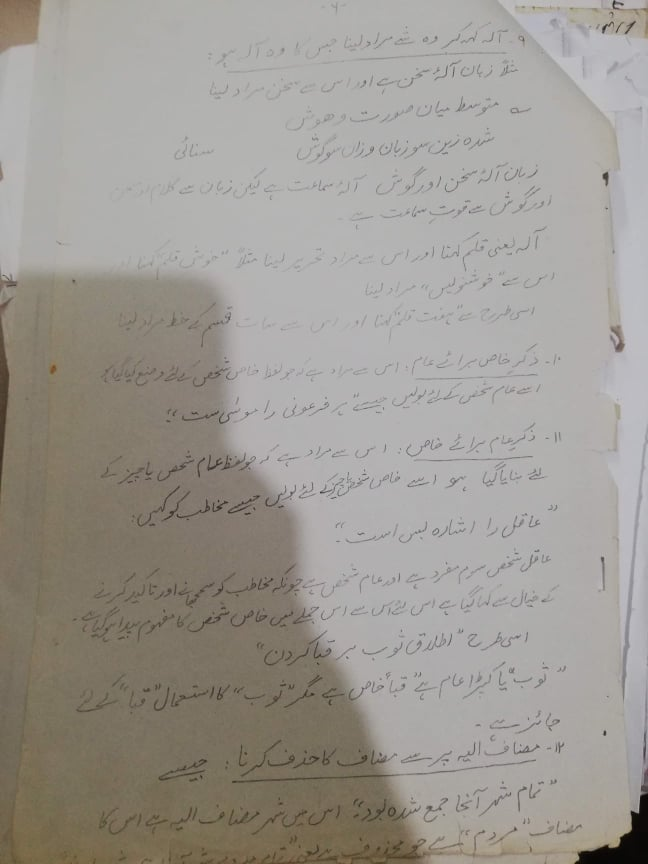 -۶-
۹۔ آلہ کہہ کر وہ شے مراد لینا جس کا وہ آلہ ہو :
مثلاً زبان آلۂ سخن ہے اور اس سے سخن مراد لینا
متوسط میان صورت و ہوش
شدہ زین سو زبان و زاں سو گوش سنائی
زبان آلۂ سخن اور گوش آلۂ سماعت ہے لیکن زبان سے کلام
اور گوش سے قوتِ سماعت ہے ۔
آلہ یعنی قلم کہنا اور اس سے مراد تحریر لینا مثلاً "خوش قلم" کہنا اور
اس سے "خوشنویس" مراد لینا
اسی طرح سے "ہفت قلم" کہنا اور اس سے سات قسم کے خط مراد لینا
۱۰۔ ذکرِ خاص برائے عام : اس سے مراد ہے کہ جو لفظ خاص شخص کے لئے وضع کیا گیا ہو
اسے عام شخص کے لئے بولیں جیسے "ہر فرعونی را موسٰی ست"
۱۱۔ ذکرِ عام برائے خاص : اس سے مراد ہے کہ جو لفظ عام شخص یا چیز کے
لئے بنایا گیا ہو اسے خاص شخص یا چیز کے لئے بولیں جیسے مخاطب کو کہیں :
"عاقل را اشارہ بس است"
عاقل شخص سوم مفرد ہے اور عام شخص ہے چونکہ مخاطب کو سمجھانے اور تاکید کرنے
کے خیال سے کہا گیا ہے اس لئے اس سے اس جملے میں خاص شخص کا مفہوم پیدا ہو گیا ہے ۔
اسی طرح "اطلاق ثوب بر قبا کردن"
"ثوب" یا کپڑا عام ہے "قبا" خاص ہے مگر "ثوب" کا استعمال "قبا" کے لئے
جائز ہے ۔
۱۲۔ مضاف الیہ پر سے مضاف کا حذف کرنا : جیسے
"تمام شہر آنجا جمع شدہ بود" اس میں شہر مضاف الیہ ہے اس کا
مضاف "مردم" ہے جو محذوف ہے یعنی